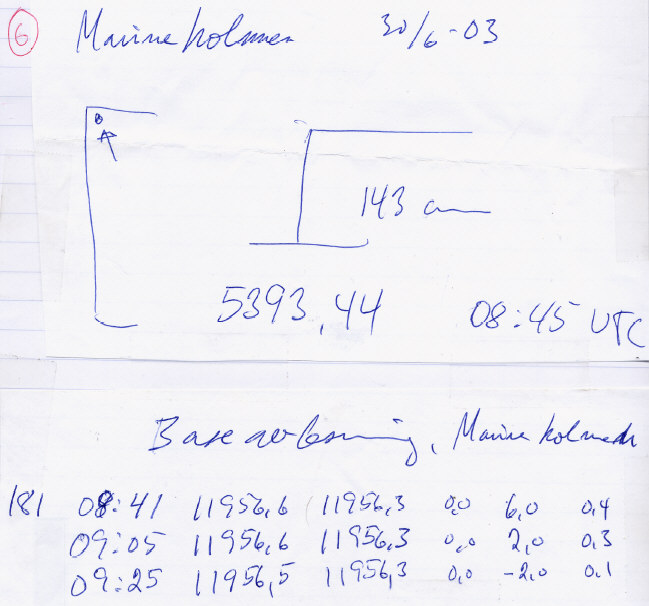 6 Marineholmen 30/6-03
B
143 cm
5393,44 08:45 UTC
Base avlesning, Marineholmen
181 08:41 11956,6 11956,3 0,0 6,0 0,4
09:05 11956,6 11956,3 0,0 2,0 0,3
09:25 11956,5 11956,3 0,0 -2,0 0,1